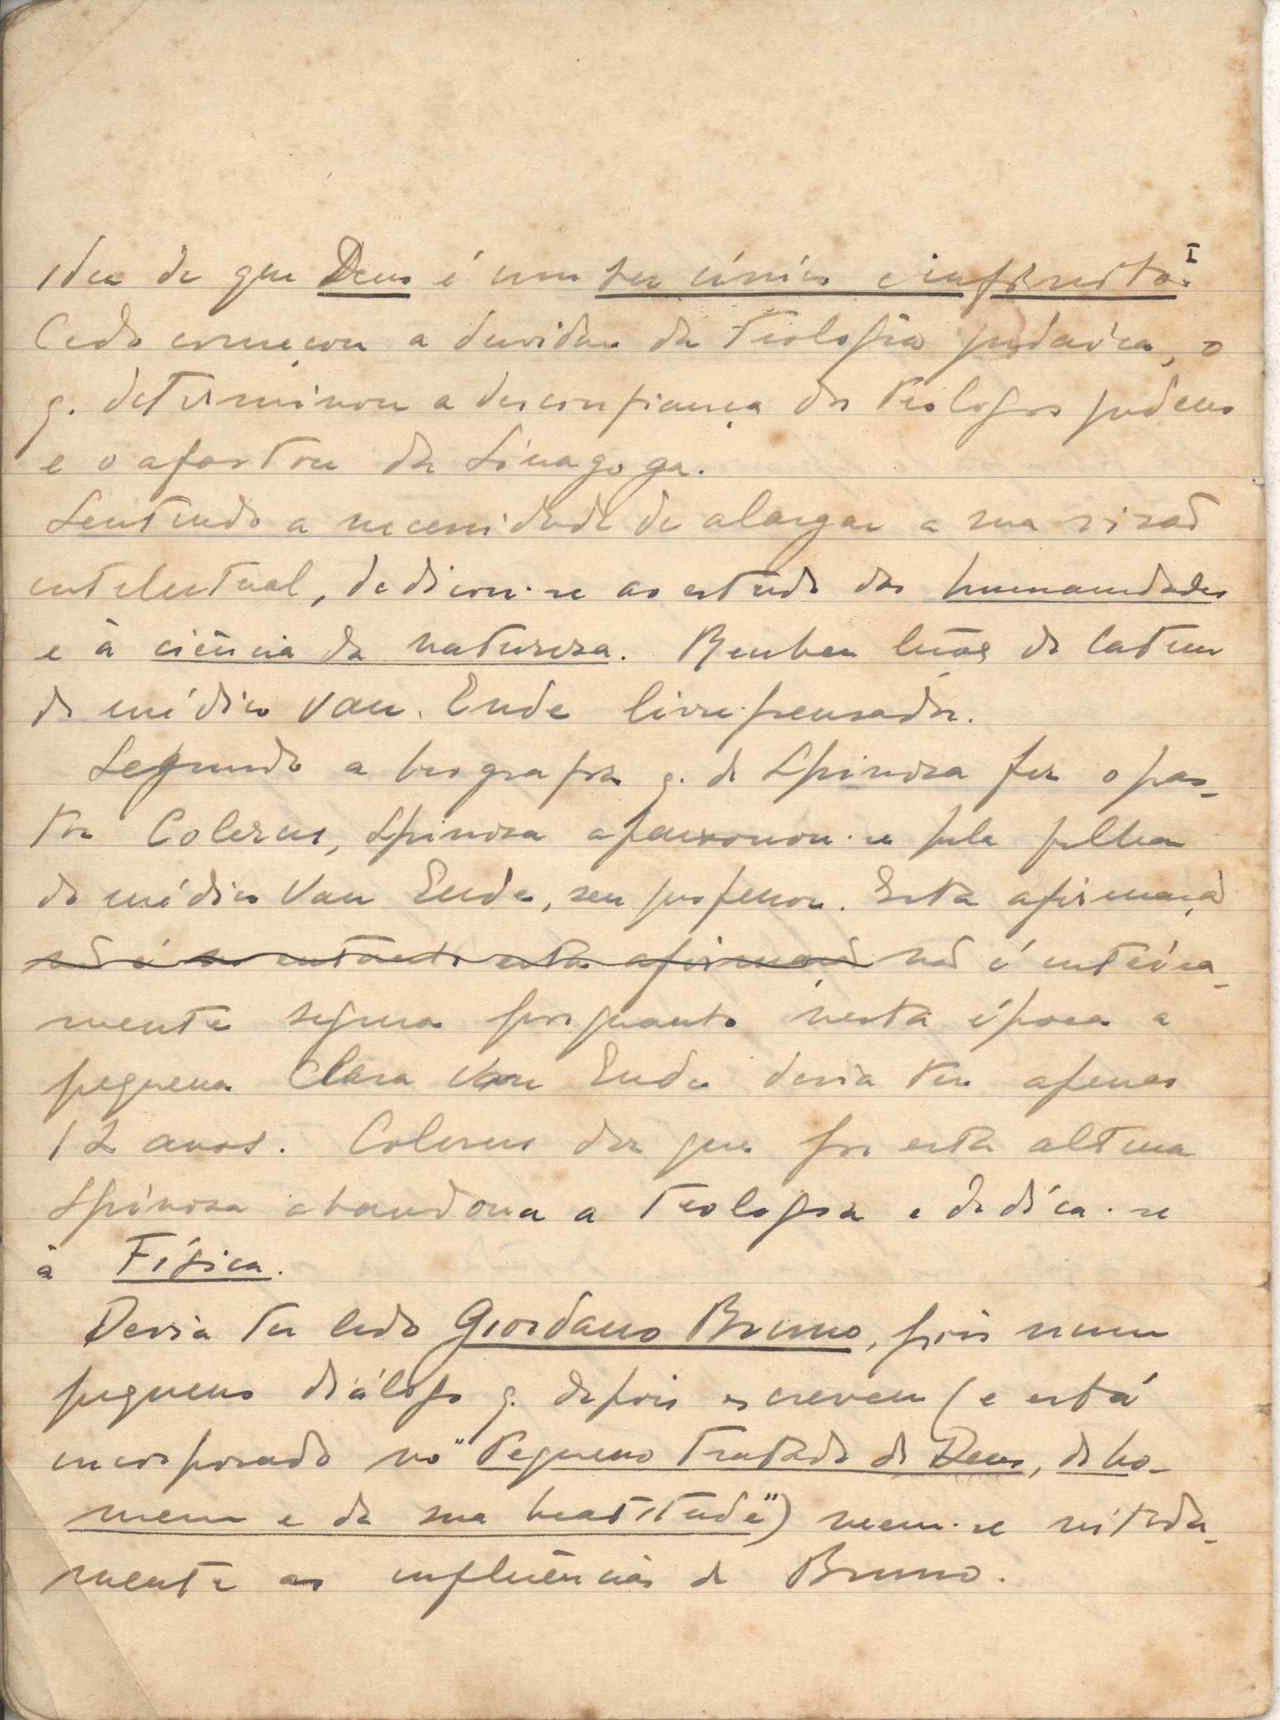 idea de que Deus é um ser único e infinito. I
Cedo começou a duvidar da teologia judaica, o
q. determinou a desconfiança dos teólogos judeus
e o afastou da Sinagoga.
Sentindo a necessidade de alargar a sua visão
intelectual, dedicou-se ao estudo das humanidades
e à ciência da natureza. Recebeu lições de latim
do médico Van. Ende livre-pensador.
Segundo a biografia q. de Spinosa fez o pas-
tor Colerus, Spinosa apaixonou-se pela filha
do médico Van Ende, seu professor. Esta afirmação
não é no entanto esta afirmação não é inteira-
mente segura porquanto nesta época a
pequena Clara Van Ende devia ter apenas
12 anos. Colerus diz que por esta altura
Spinosa abandona a teologia e dedica-se
à Física.
Devia ter lido Giordano Bruno, pois num
pequeno diálogo q. depois escreveu (e está
incorporado no "Pequeno tratado de Deus, do ho-
mem e da sua beatitude") veem-se nitida-
mente as influências de Bruno.